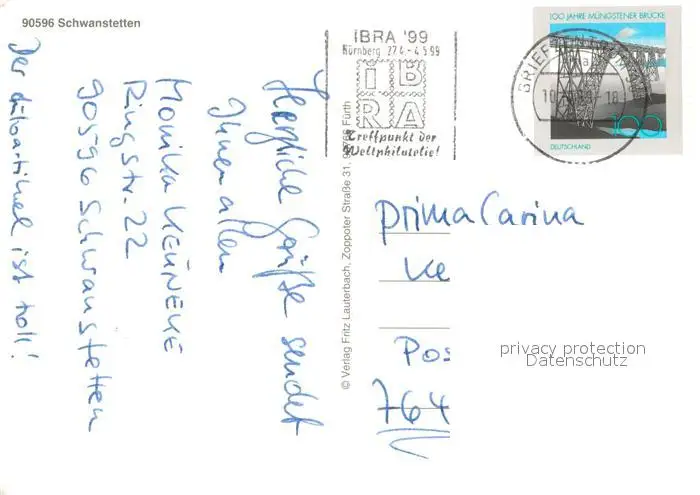 90596 Schwanstetten
Herzliche Grüße sendet
Ihnen allen
Monika KEUNEKE
Ringstr. 22
90596 Schwanstetten
Der
ist toll!
© Verlag Fritz Lauterbach, Zoppoter Straße 31, 90766 Fürth
IBRA '99
Nürnberg 27.4.-4.5.99
IB
RA
Treffpunkt der
Weltphilatelie!
BRIEFZENTRUM
10
18
100 JAHRE MÜNGSTENER BRÜCKE
100
DEUTSCHLAND
prima Carina
Ke
Pos
764
privacy protection
Datenschutz